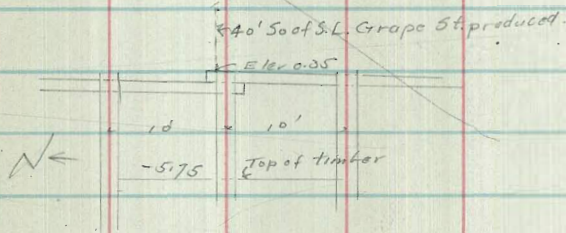 40' So of S.L. Grape St. produced.
Elev 0.35
10' 10'
N
-5.75 Top of timber